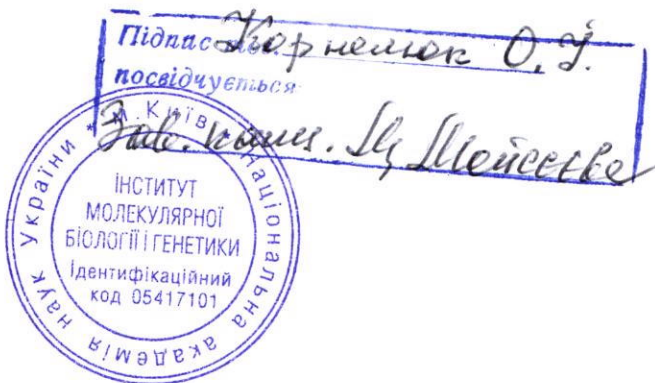 Підпис Корнелюк О.І.
посвідчується
Зав. канц. Мойсеєва
* м. Київ * Національна академія наук України
ІНСТИТУТ
МОЛЕКУЛЯРНОЇ
БІОЛОГІЇ І ГЕНЕТИКИ
Ідентифікаційний
код 05417101